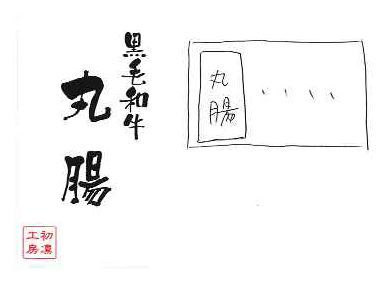 黒毛和牛
丸腸
初凛
工房
丸腸